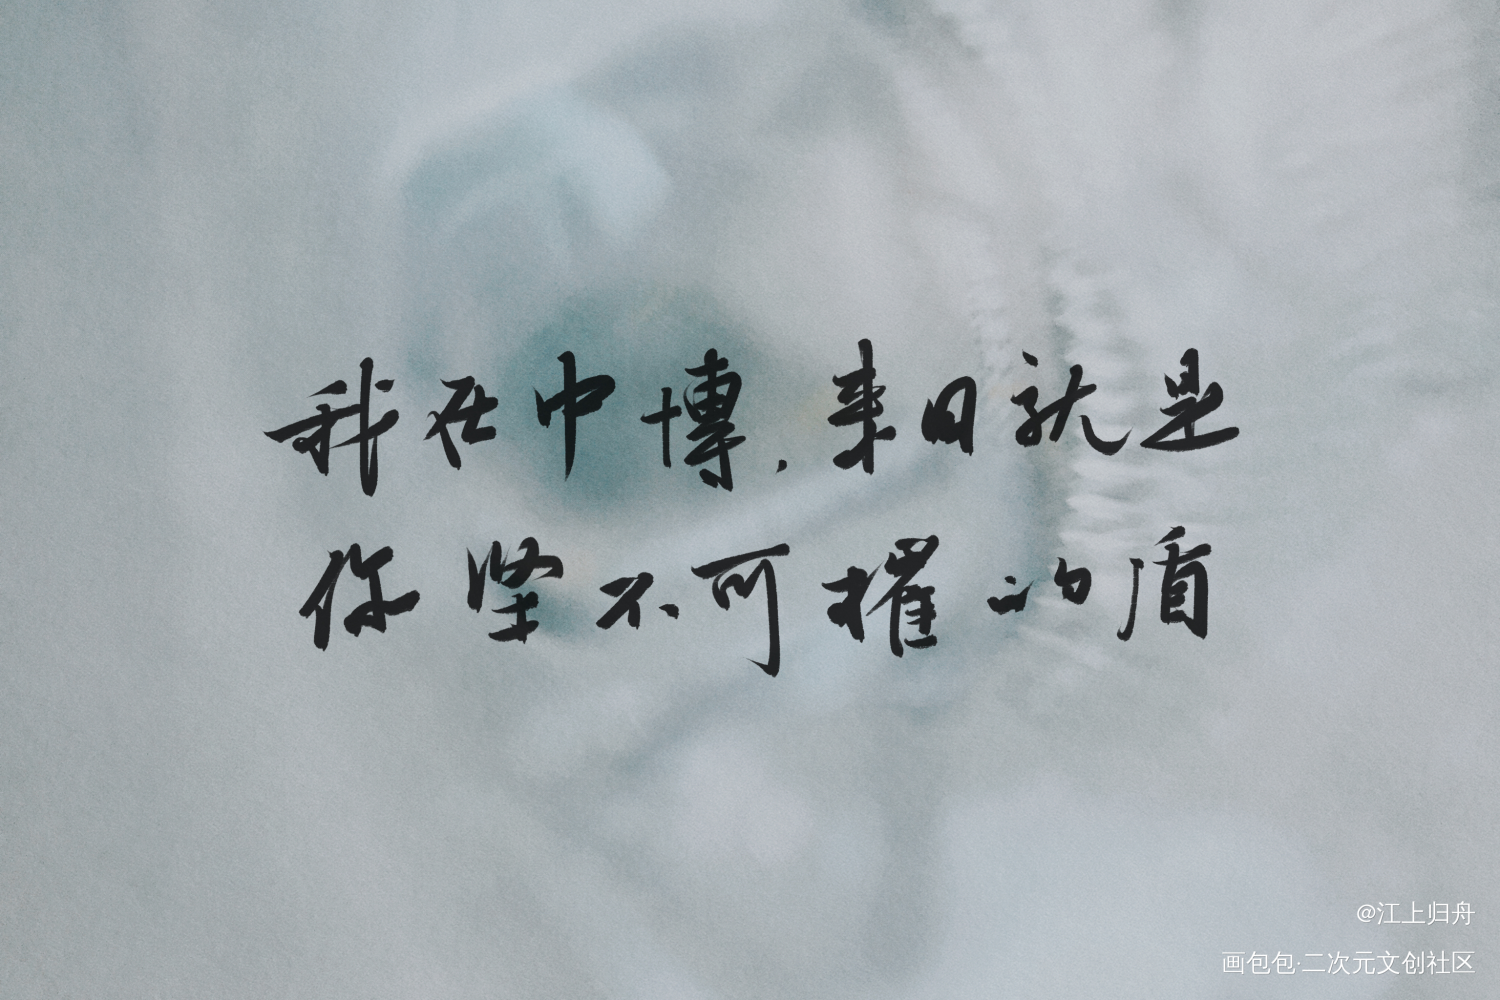 我在中博,来日就是
你坚不可摧的盾
@江上归舟
画包包·二次元文创社区